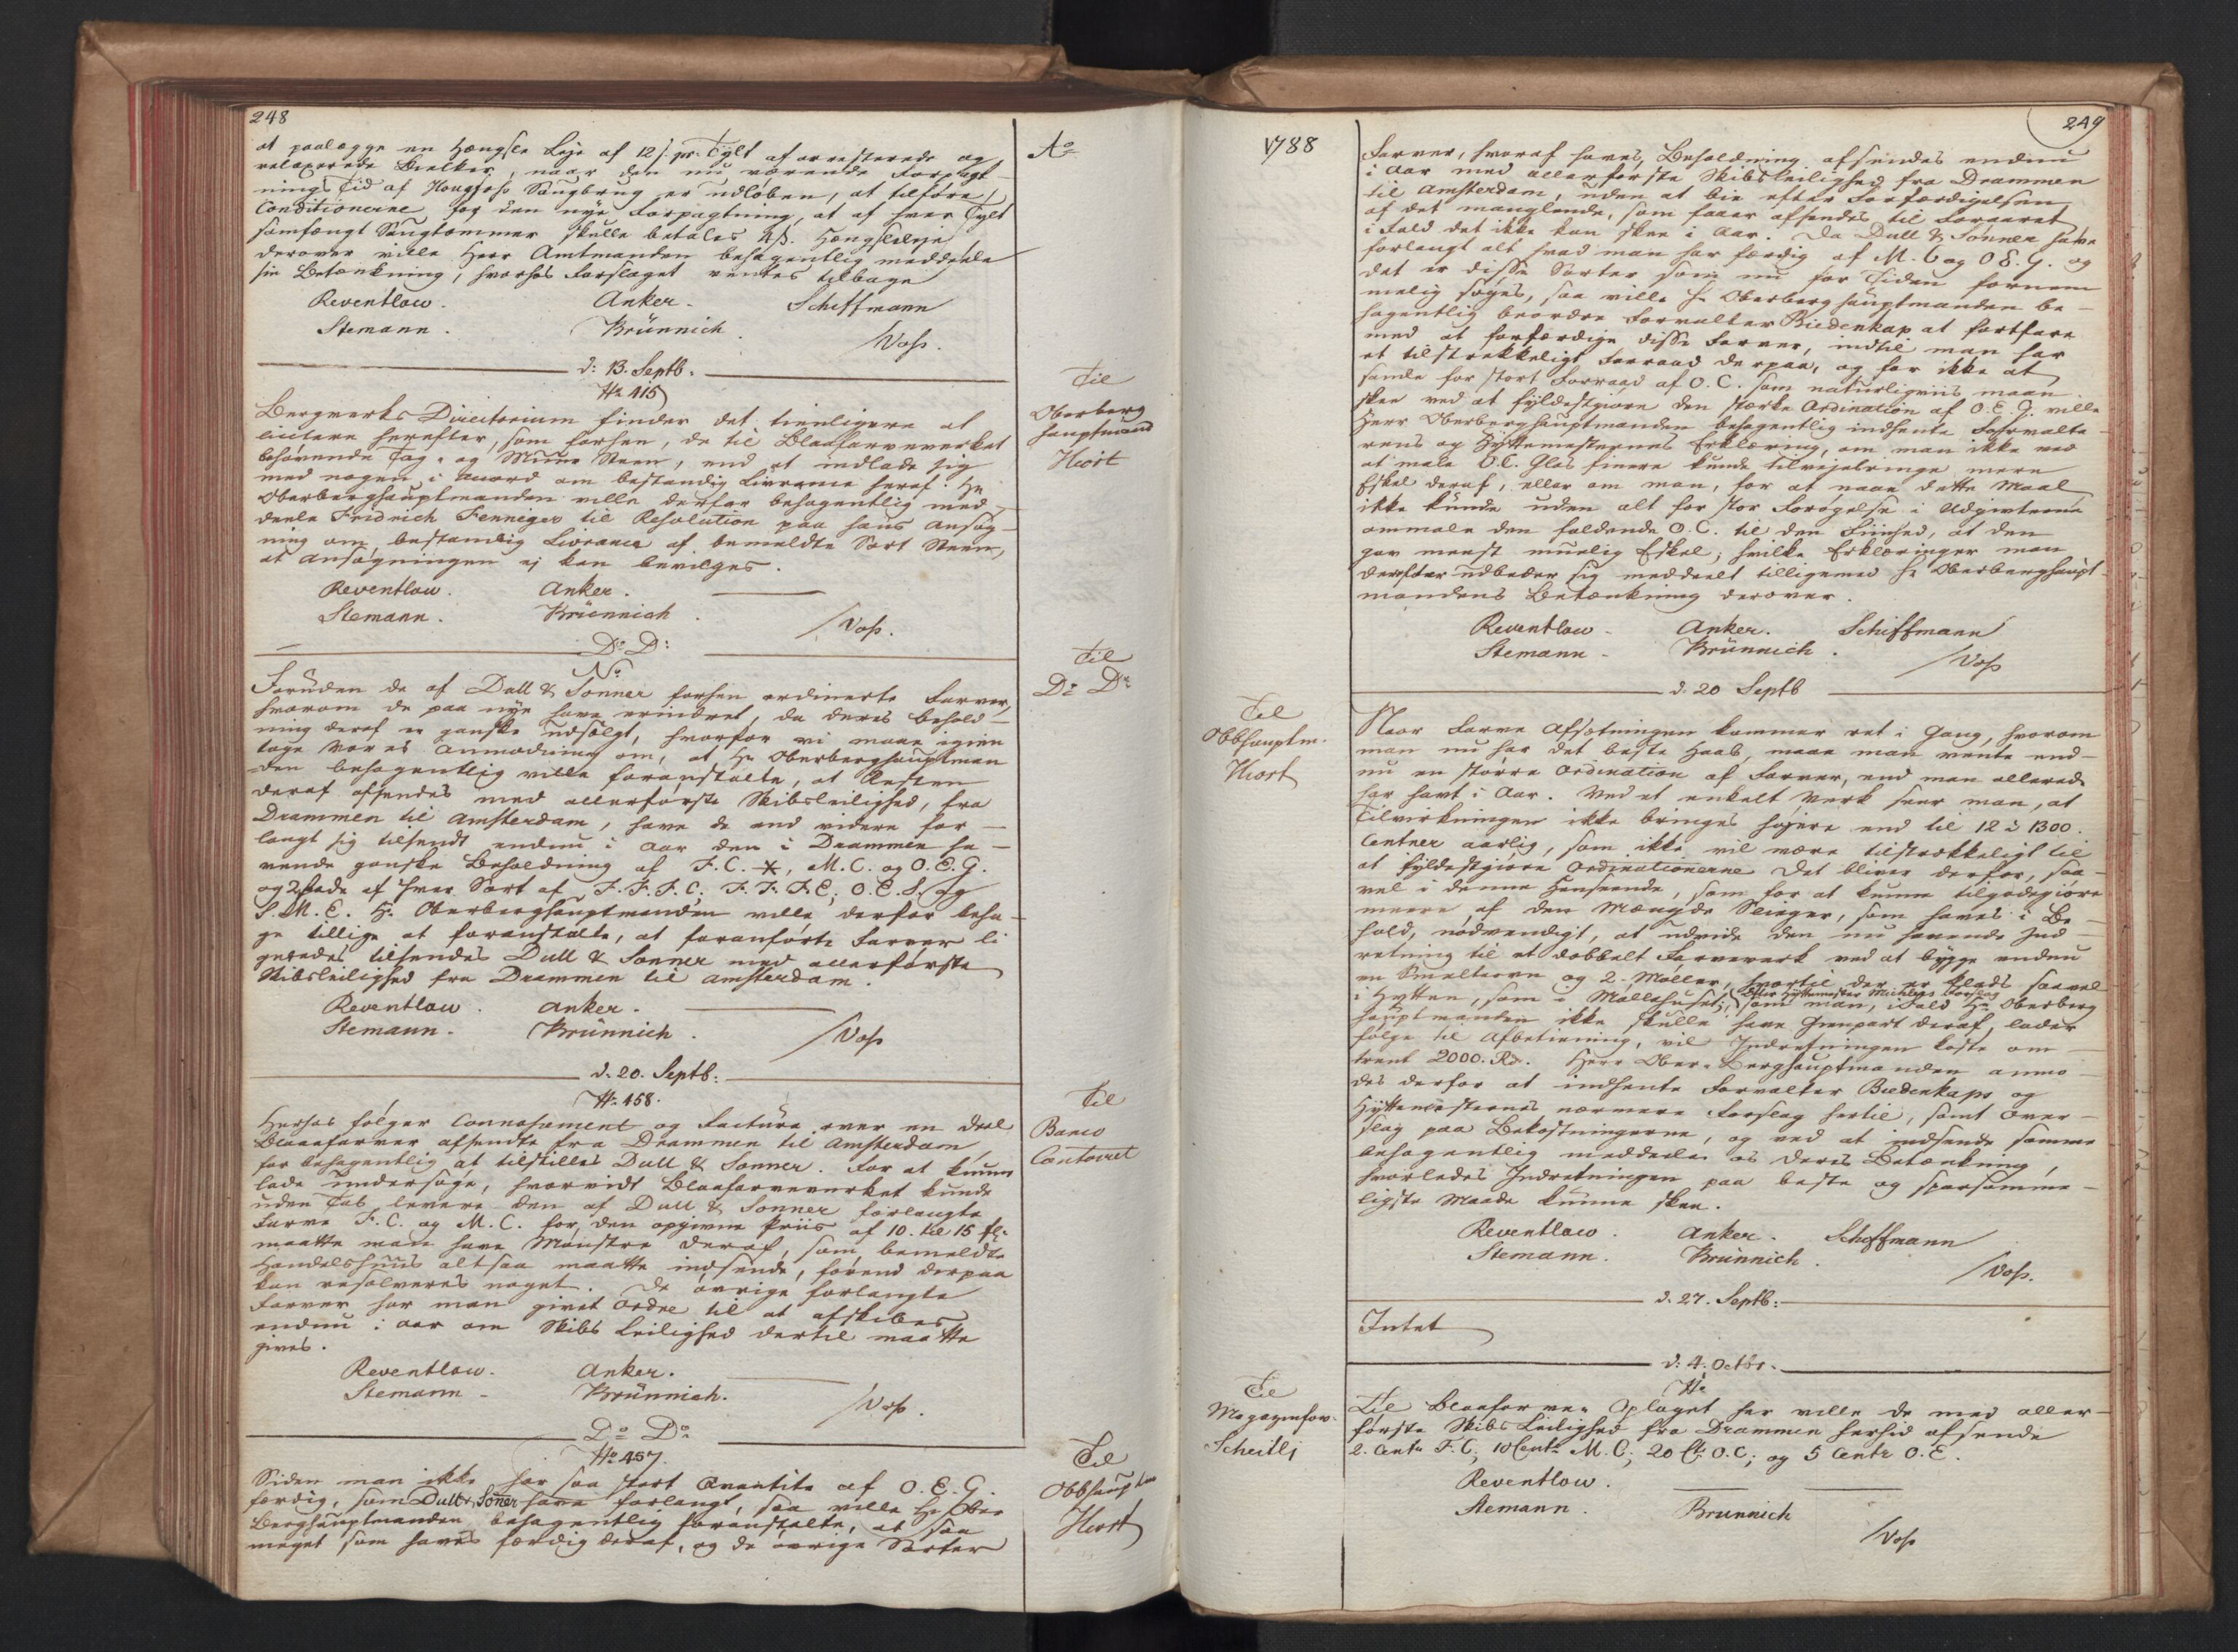 248
at paalægge en Hængsle Leje af 12 s. pr. Tylt af arresterede og
relaxerede Bielker, naar den nu værende Forpagt-
nings Tid af Hougfoss Saugbrug er udløben, at tilføre
Conditionerne for den nye Forpagtning, at af hver Tylt
samfængt Saugtømmer skulle betales 4 s. Hængsleleje
derover ville Herr Amtmanden behagentlig meddeele
sin Betænkning, hvorhos Forslaget ventes tilbage
Reventlow. Anker. Schiffmann
Stemann. Brünnich. /Voss.
A°
d: 13. Septb:
N° 415
Til
Oberberg
hauptmand
Hiort
Bergverks Directorium finder det tienligere at
licitere herefter, som forhen, de til Blaafarveverket
behøvende Tag- og Muur Steen, end at indlade sig
med nogen i Accord om bestandig Livrance heraf. Hr
Oberberghauptmanden ville derfor behagentlig med-
deele Fridrich Fenniger til Resolution paa hans Ansøg-
ning om bestandig Livrance af bemeldte Sort Steen,
at Ansøgningen ej kan bevilges.
Reventlow. Anker.
Stemann. Brünnich. /Voss.
D° D°
N°
Til
D° D°
Foruden de af Dull & Sönner forhen ordinerte Farver,
hvorom de paa nye have erindret, da deres Behold-
ning deraf er ganske udsolgt, hvorfor vi maae igien
tage vores Anmodning om, at Hr Oberberghauptman
den behagentlig ville foranstalte, at Resten
deraf afsendes med allerførste Skibsleilighed, fra
Drammen til Amsterdam, have de end videre for-
langt sig tilsendt endnu i Aar den i Drammen ha-
vende ganske Beholdning af F.C. X, M.C. og O.E.G.
og 2 Fade af hver Sort af F.F.F.C; F.F.F.E; O.E.S. og
S.M.E. Hr Oberberghauptmanden ville derfor beha-
ge tillige at foranstalte, at foranførte Farver li
geledes tilsendes Dull & Sönner med allerførste
Skibsleilighed fra Drammen til Amsterdam.
Reventlow. Anker.
Stemann. Brünnich. /Voss
d. 20. Septb:
N° 458.
Til
Banco
Contoiret
Herhos følger Connossement og Factura over en Deel
Blaaefarver afsendte fra Drammen til Amsterdam,
for behagentlig at tilstilles Dull & Sönner. For at kunne
lade undersøge, hvorvidt Blaafarveverket kunde
uden Tab levere den af Dull & Sönner forlangte
Farve F.C. og M.C. for den opgivne Priis af 10. til 15 fl.
maatte man have Mønstre deraf, som bemeldte
Handelshuus altsaa maatte indsende, førend derpaa
kan resolveres noget. De øvrige forlangte
Farver har man givet Ordre til at afskibes
endnu i Aar om Skibs Leilighed dertil maatte
gives.
Reventlow. Anker.
Stemann. Brünnich. /Voss.
D° D°
N° 457.
Til
Obbhauptm
Hiort
Siden man ikke har saa stort Qvantite af O.E.G.
færdig, som Dull & Sönner have forlangt, saa ville Hr Ober
Berghauptmanden behagentlig foranstalte, at saa
meget som haves færdig deraf, og de øvrige Sorter
1788
249
Farver, hvoraf haves Beholdning afsendes endnu
i Aar med allerførste Skibsleilighed fra Drammen
til Amsterdam, uden at bie efter Forfærdigelsen
af det manglende, som faaer afsendes til Foraaret
i Fald det ikke kan skee i Aar. Da Dull & Sönner have
forlangt alt hvad man har færdig af M.C. og O.E.G. og
det er disse Sorter som nu for Tiden fornem
melig søges, saa ville Hr Oberberghauptmanden be-
hagentlig beordre Forvalter Biedenkap at fortfare
med at forfærdige disse Farver, indtil man har
et tilstrekkeligt Forraad derpaa, og for ikke at
samle for stort Forraad af O.C. som naturligviis maae
skee ved at fyldestgiøre den stærke Ordination af O.E.G. ville
Herr Oberberghauptmanden behagentlig indhente Forvalte-
rens og Hyttemesternes Erklæring, om man ikke ved
at male O.C. Glas finere kunde tilvejebringe mere
Eskel deraf, eller om man, for at naae dette Maal
ikke kunde uden alt for stor Forøgelse i Udgivterne
ommale den faldende O.C. til den Fiinhed, at den
gav meest muelig Eskel; hvilke Erklæringer man
derefter udbeder sig meddeelt tilligemed Hr Oberberghaupt-
mandens Betænkning derover.
Reventlow. Anker. Schiffmann
Stemann. Brünnich. /Voss
d. 20 Septb
Til
Obbhauptm.
Hiort
Naar Farve Afsætningen kommer ret i Gang, hvorom
man nu har det beste Haab, maae man vente end-
nu en større Ordination af Farver, end man allerede
har havt i Aar. Ved et enkelt Verk seer man, at
Tilvirkningen ikke bringes højere end til 12 à 1300.
Centner aarlig, som ikke vil være tilstrækkeligt til
at fyldestgiøre Ordinationerne. Det bliver derfor, saa-
vel i denne Henseende, som for at kunne tilgodegiøre
meere af den Mængde Slieger, som haves i Be-
hold, nødvendigt, at udvide den nu havende Ind-
retning til et dobbelt Farveverk ved at bygge endnu
en Smelteovn og 2 Møller, hvortil der er Plads saavel
i Hytten, som i Møllehuset; efter Hyttemester Michligs Forslag
som man, i Fald Hr Oberberg
hauptmanden ikke skulle have Gienpart deraf, lader
følge til Afbetiening, vil Indretningen koste om-
trent 2000. Rd. Herr Ober-Berghauptmanden anmo-
des derfor at indhente Forvalter Biedenkaps og
Hyttemesternes nærmere Forslag hertil, samt Over-
slag paa Bekostningerne, og ved at indsende samme
behagentlig meddeele os Deres Betænkning,
hvorledes Indretningen paa beste og sparsomme-
ligste Maade kunne skee.
Reventlow. Anker. Schiffmann
Stemann. Brünnich. /Voss.
d. 27. Septb:
Intet
d: 4. Octbr.
N°
Til
Magazinforv.
Scheitlj
Til Blaafarve-Oplaget her ville De med aller-
første Skibs Leilighed fra Drammen herhid afsende
2. Centr F.C; 10 Centr M.C; 20 Ctr O.C; og 5 Centr O.E.
Reventlow.
Stemann. Brünnich
/Voss